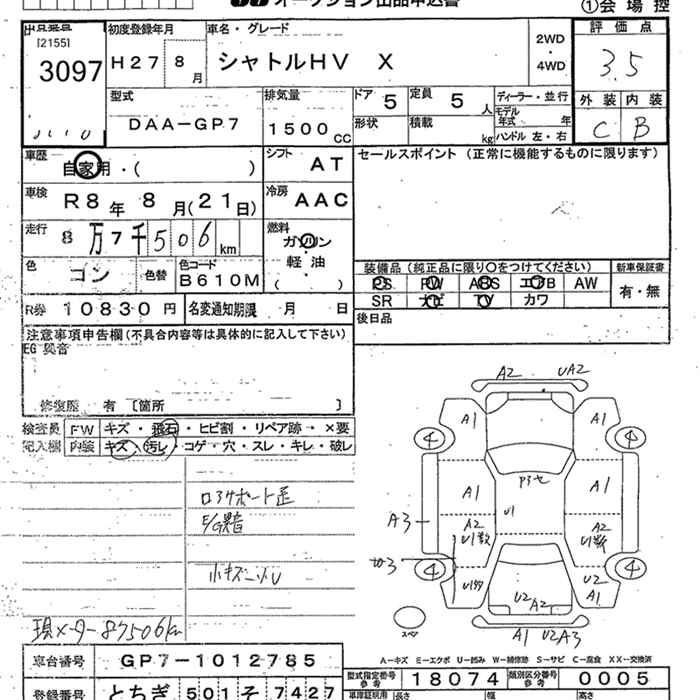 オークション出品申込書
①会場控
[2155]
3097
初度登録年月
H27 8月
車名・グレード
シャトルHV X
2WD・4WD
評価点
3.5
外装 内装
C B
型式
DAA-GP7
排気量
1500CC
ドア 5
定員 5人
形状
積載 kg
ディーラー・並行
モデル年式 年
ハンドル 左・右
車歴
自家用・( )
シフト AT
セールスポイント (正常に機能するものに限ります)
車検
R8年8月(21日)
冷房 AAC
走行
8万7千506km
燃料
ガソリン
軽油
( )
色 ゴン 色替 色コード B610M
装備品 (純正品に限り〇をつけてください)
新車保証書
PS PW ABS エアB AW
有・無
SR ナビ TV カワ
R券 10830円
名変通知期限 月 日
後日品
注意事項申告欄 (不具合内容等は具体的に記入して下さい)
EG異音
修復歴 有 〔箇所 〕
検査員 FW キズ・飛石・ヒビ割・リペア跡→×要
記入欄 内装 キズ・汚レ・コゲ・穴・スレ・キレ・破レ
E/G異音
現メーター87506km
A2 UA2
A1 A1
4 4
A1 A1
U1
A3
A2 A2
4 4
U2
A1
U2 A2
スペア
A1 U2 A3
A—キズ E—エクボ U—凹み W—補修跡 S—サビ C—腐食 XX—交換済
車台番号 GP7-1012785
型式指定番号 参考 18074
類別区分番号 参考 0005
登録番号 とちぎ 501 そ 7427
長さ 幅 高さ